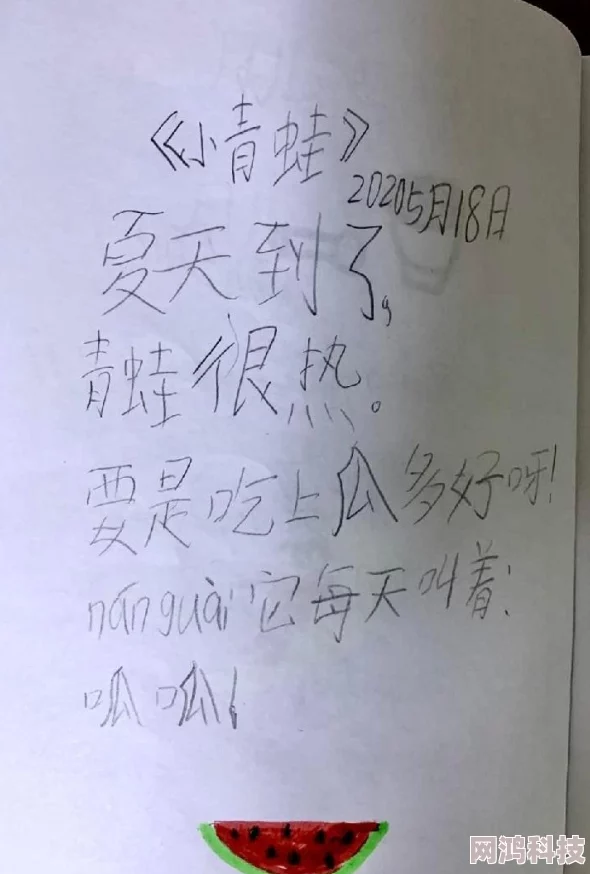 《小青蛙》
20205月18日
夏天到了，
青蛙很热。
要是吃上瓜多好呀！
nánguài它每天叫着：
呱呱！
网鸿科技